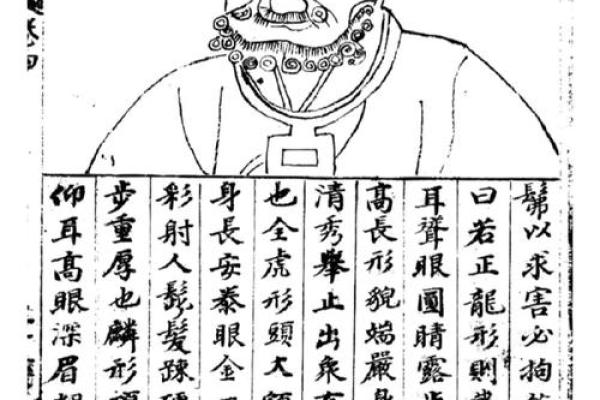 髴以求害必拘
曰若正龍形則
耳聳眼圓睛露步
高長形貌端嚴身
清秀舉止出衆
也全虎形頭大額
身長安泰眼金
彩射人髭髮踈
步重厚也麟形
仰耳高眼深眉
卷四